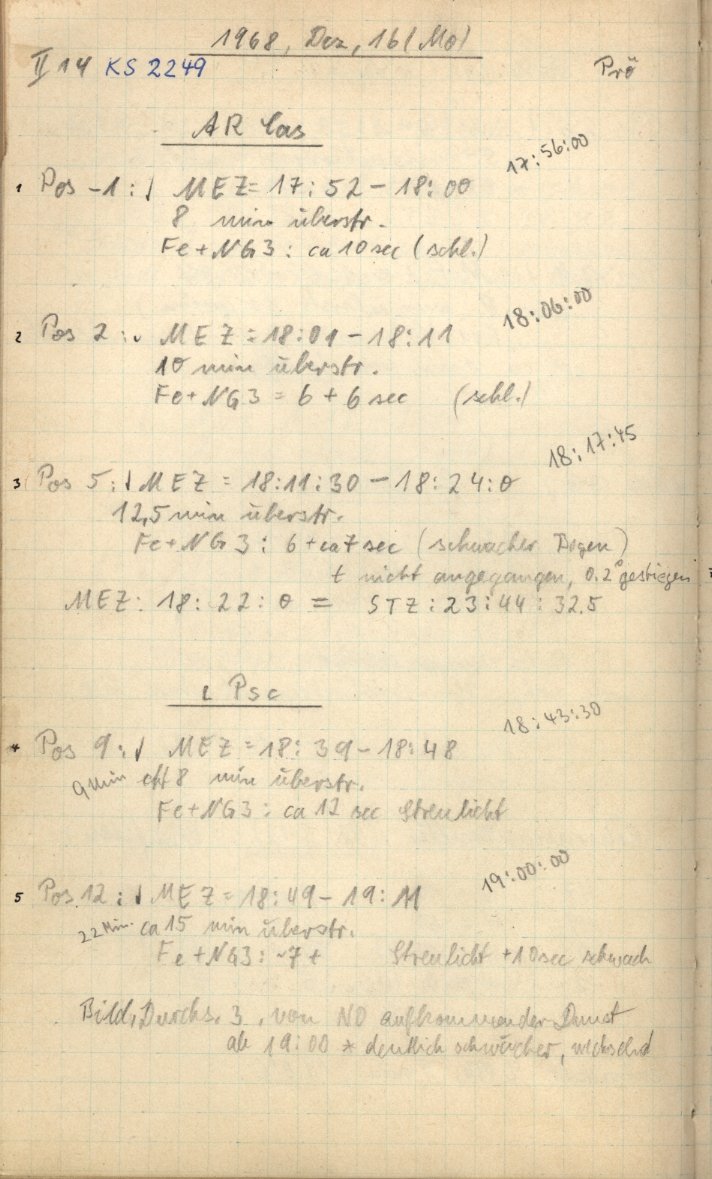 1968, Dez, 16 (Mo)
II 14 KS 2249 Prö
AR Cas
17:56:00
1 Pos -1: ↓ MEZ = 17:52 - 18:00
8 min überstr.
Fe+NG3: ca 10 sec (schl.)
18:06:00
2 Pos 2: MEZ = 18:01 - 18:11
10 min überstr.
Fe+NG3 = 6 + 6 sec (schl.)
18:17:45
3 Pos 5: ↓ MEZ = 18:11:30 - 18:24:0
12,5 min überstr.
Fe+NG3: 6 + ca 7 sec (schwacher Regen)
t nicht angegangen, 0.2° gestiegen
MEZ: 18:22:0 = STZ: 23:44:32.5
ι Psc
18:43:30
4 Pos 9: ↓ MEZ = 18:39 - 18:48
9 min eff 8 min überstr.
Fe+NG3: ca 12 sec Streulicht
19:00:00
5 Pos 12: ↓ MEZ = 18:49 - 19:11
22 Min. ca 15 min überstr.
Fe+NG3: ~7 + Streulicht +10 sec schwach
Bild, Durchs. 3, von NO aufkommender Dunst
ab 19:00 * deutlich schwächer, wechselnd